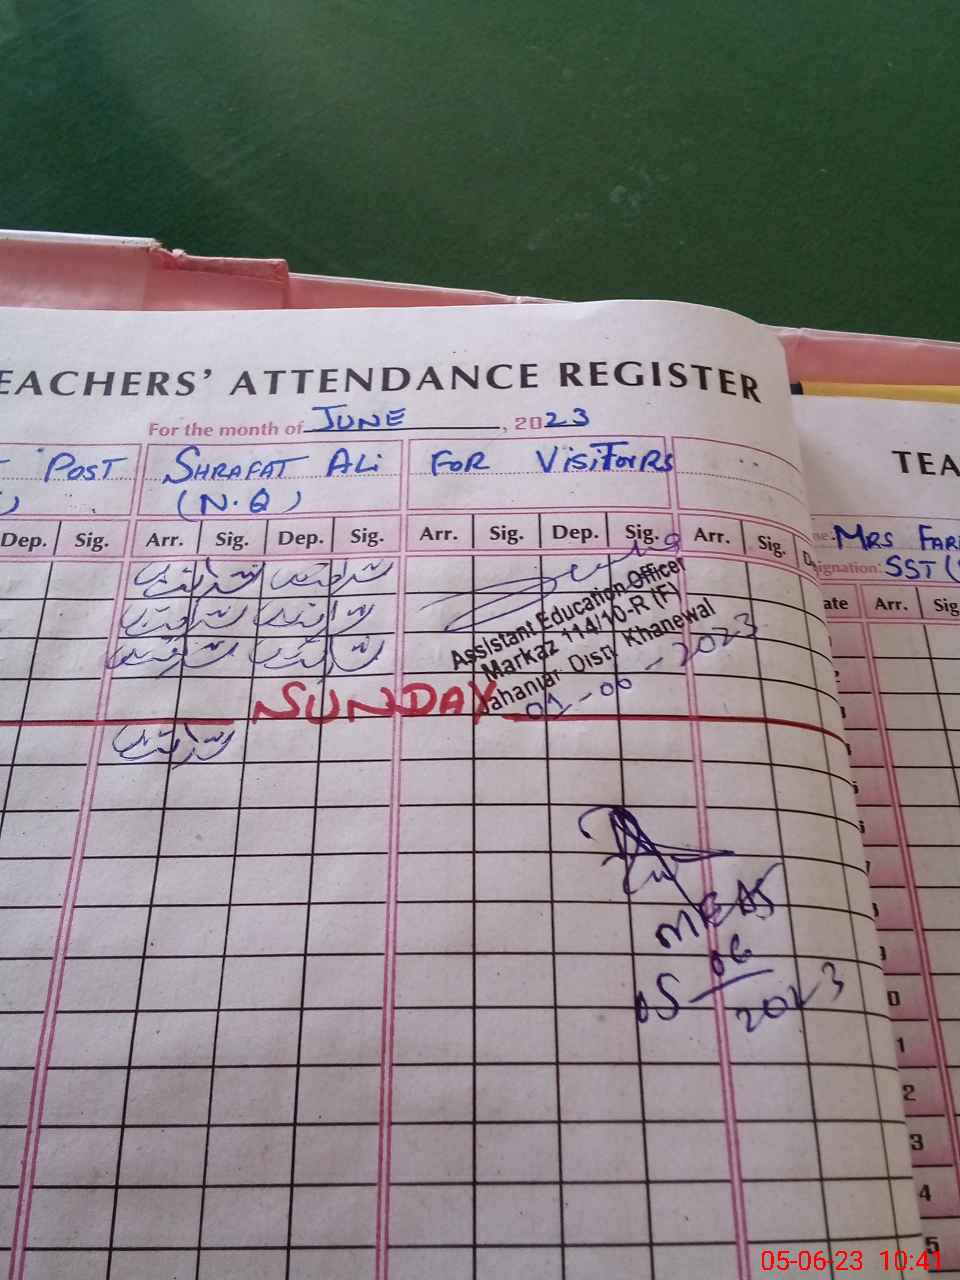 EACHERS' ATTENDANCE REGISTER
For the month of JUNE, 2023
POST
SHRAFAT ALi
(N.Q)
FOR VISITORS
Dep. Sig. Arr. Sig. Dep. Sig. Arr. Sig. Dep. Sig. Arr. Sig. D
Assistant Education Officer
Markaz 114/10-R (F)
Jahanian Distt. Khanewal
01-06-2023
SUNDAY
MEAS
05 06
2023
TEA
me: MRS FAR
signation: SST (
ate Arr. Sig
2
3
4
5
6
7
8
9
0
1
2
3
4
5
05-06-23 10:41